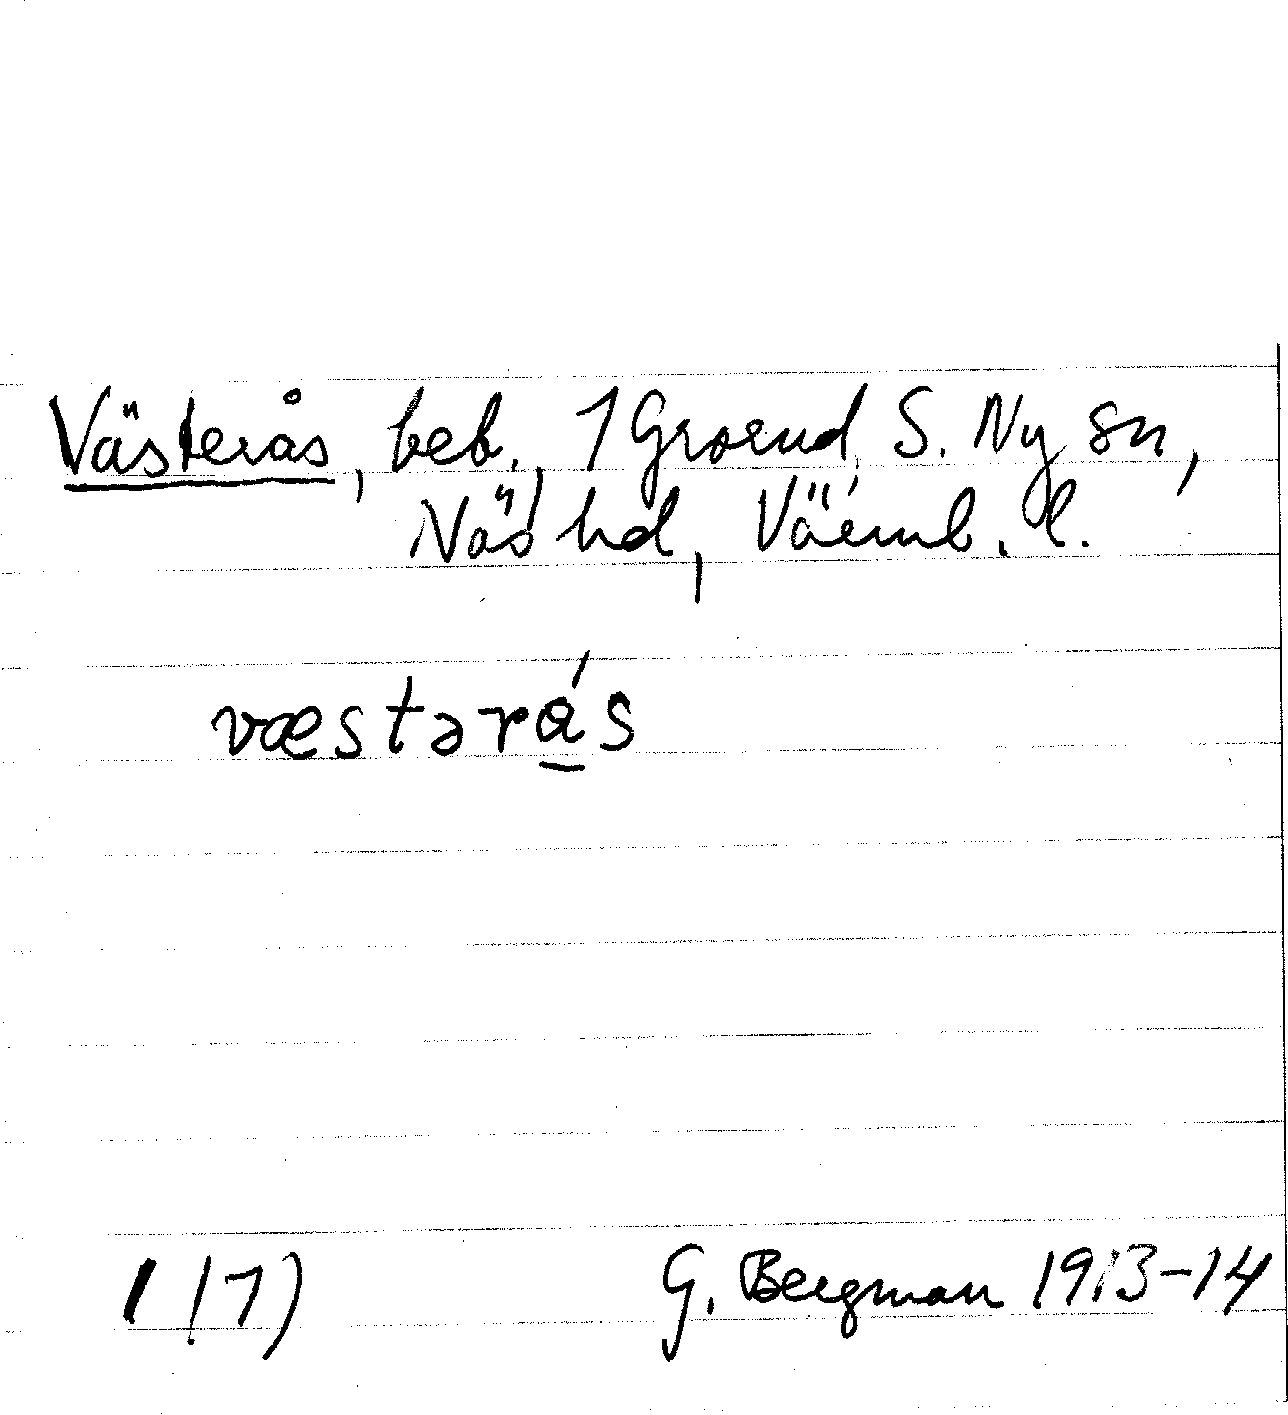 Västerås, beb., 1 Grænd, S. Ny sn,
Näs hd, Värml. l.
væstərás
1 (7)
G. Bergman 1913-14